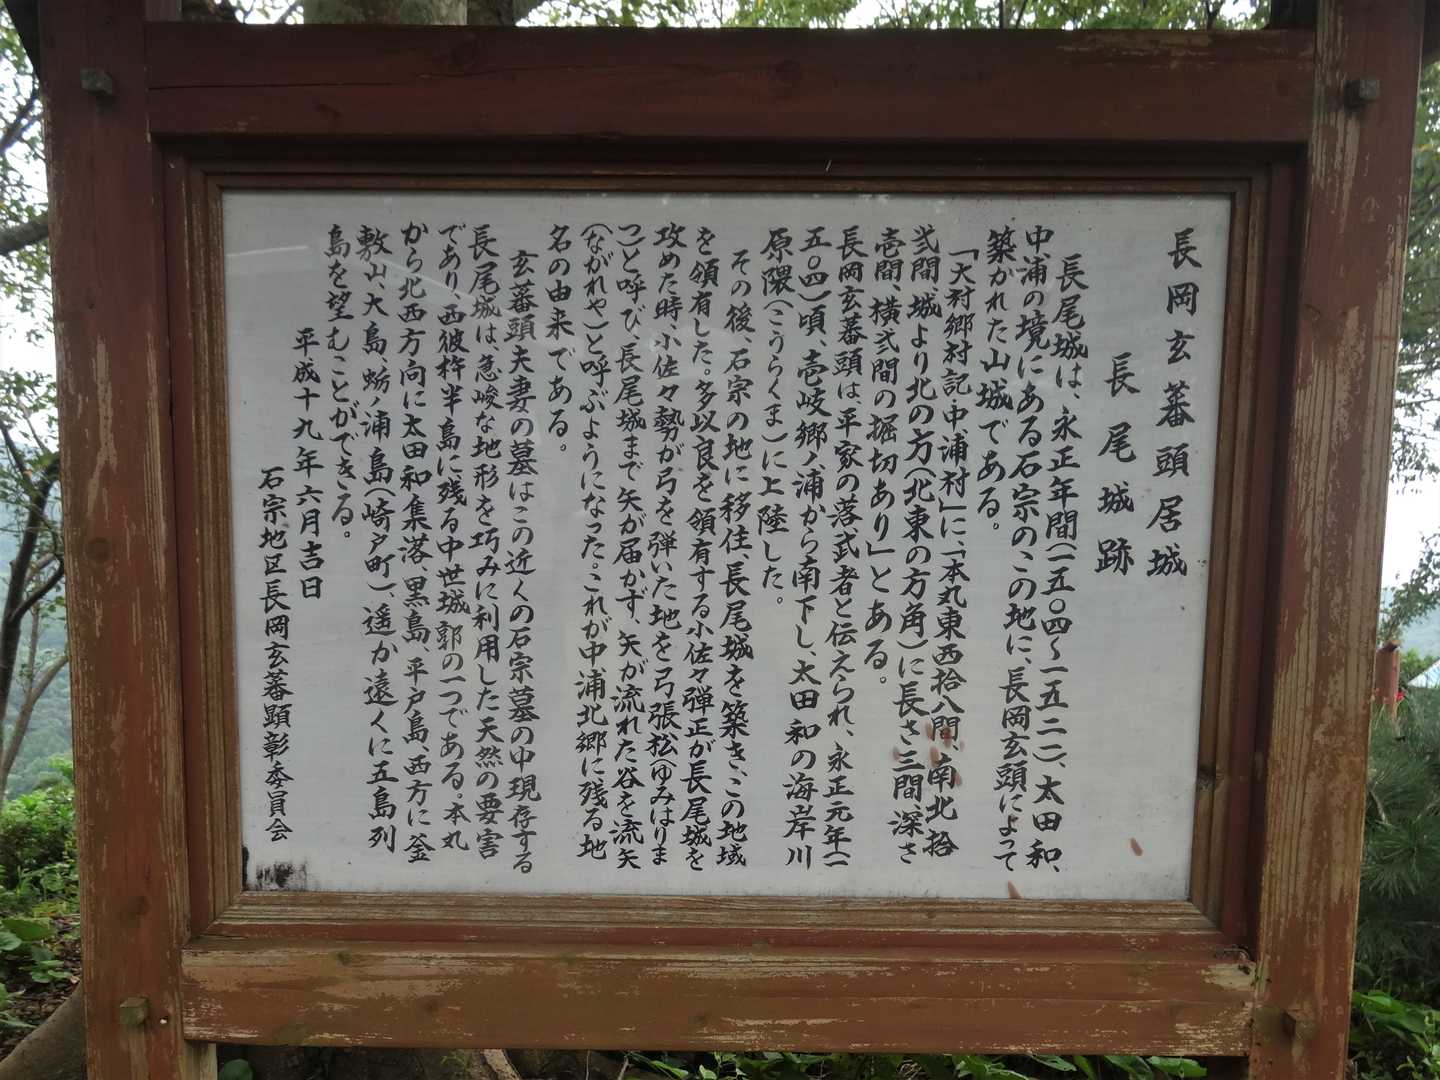 長岡玄蕃頭居城
長尾城跡
長尾城は、永正年間(一五〇四〜一五二一)、太田和、
中浦の境にある石宗のこの地に、長岡玄頭によって
築かれた山城である。
「大村郷村記・中浦村」に、「本丸東西拾八間、南北拾
弐間、城より北の方(北東の方角)に長さ三間、深さ
壱間、横弐間の堀切あり」とある。
長岡玄蕃頭は、平家の落武者と伝えられ、永正元年(一
五〇四)頃、壱岐郷ノ浦から南下し、太田和の海岸川
原隈(こうらくま)に上陸した。
その後、石宗の地に移住、長尾城を築き、この地域
を領有した。多以良を領有する小佐々弾正が長尾城を
攻めた時、小佐々勢が弓を弾いた地を弓張松(ゆみはりま
つ)と呼び、長尾城まで矢が届かず、矢が流れた谷を流矢
(ながれや)と呼ぶようになった。これが中浦北郷に残る地
名の由来である。
玄蕃頭夫妻の墓はこの近くの石宗墓の中現存する
長尾城は、急峻な地形を巧みに利用した天然の要害
であり、西彼杵半島に残る中世城郭の一つである。本丸
から北西方向に太田和集落、黒島、平戸島、西方に釜
敷山、大島、蛎ノ浦島(崎戸町)、遥か遠くに五島列
島を望むことができる。
平成十九年六月吉日
石宗地区長岡玄蕃顕彰委員会